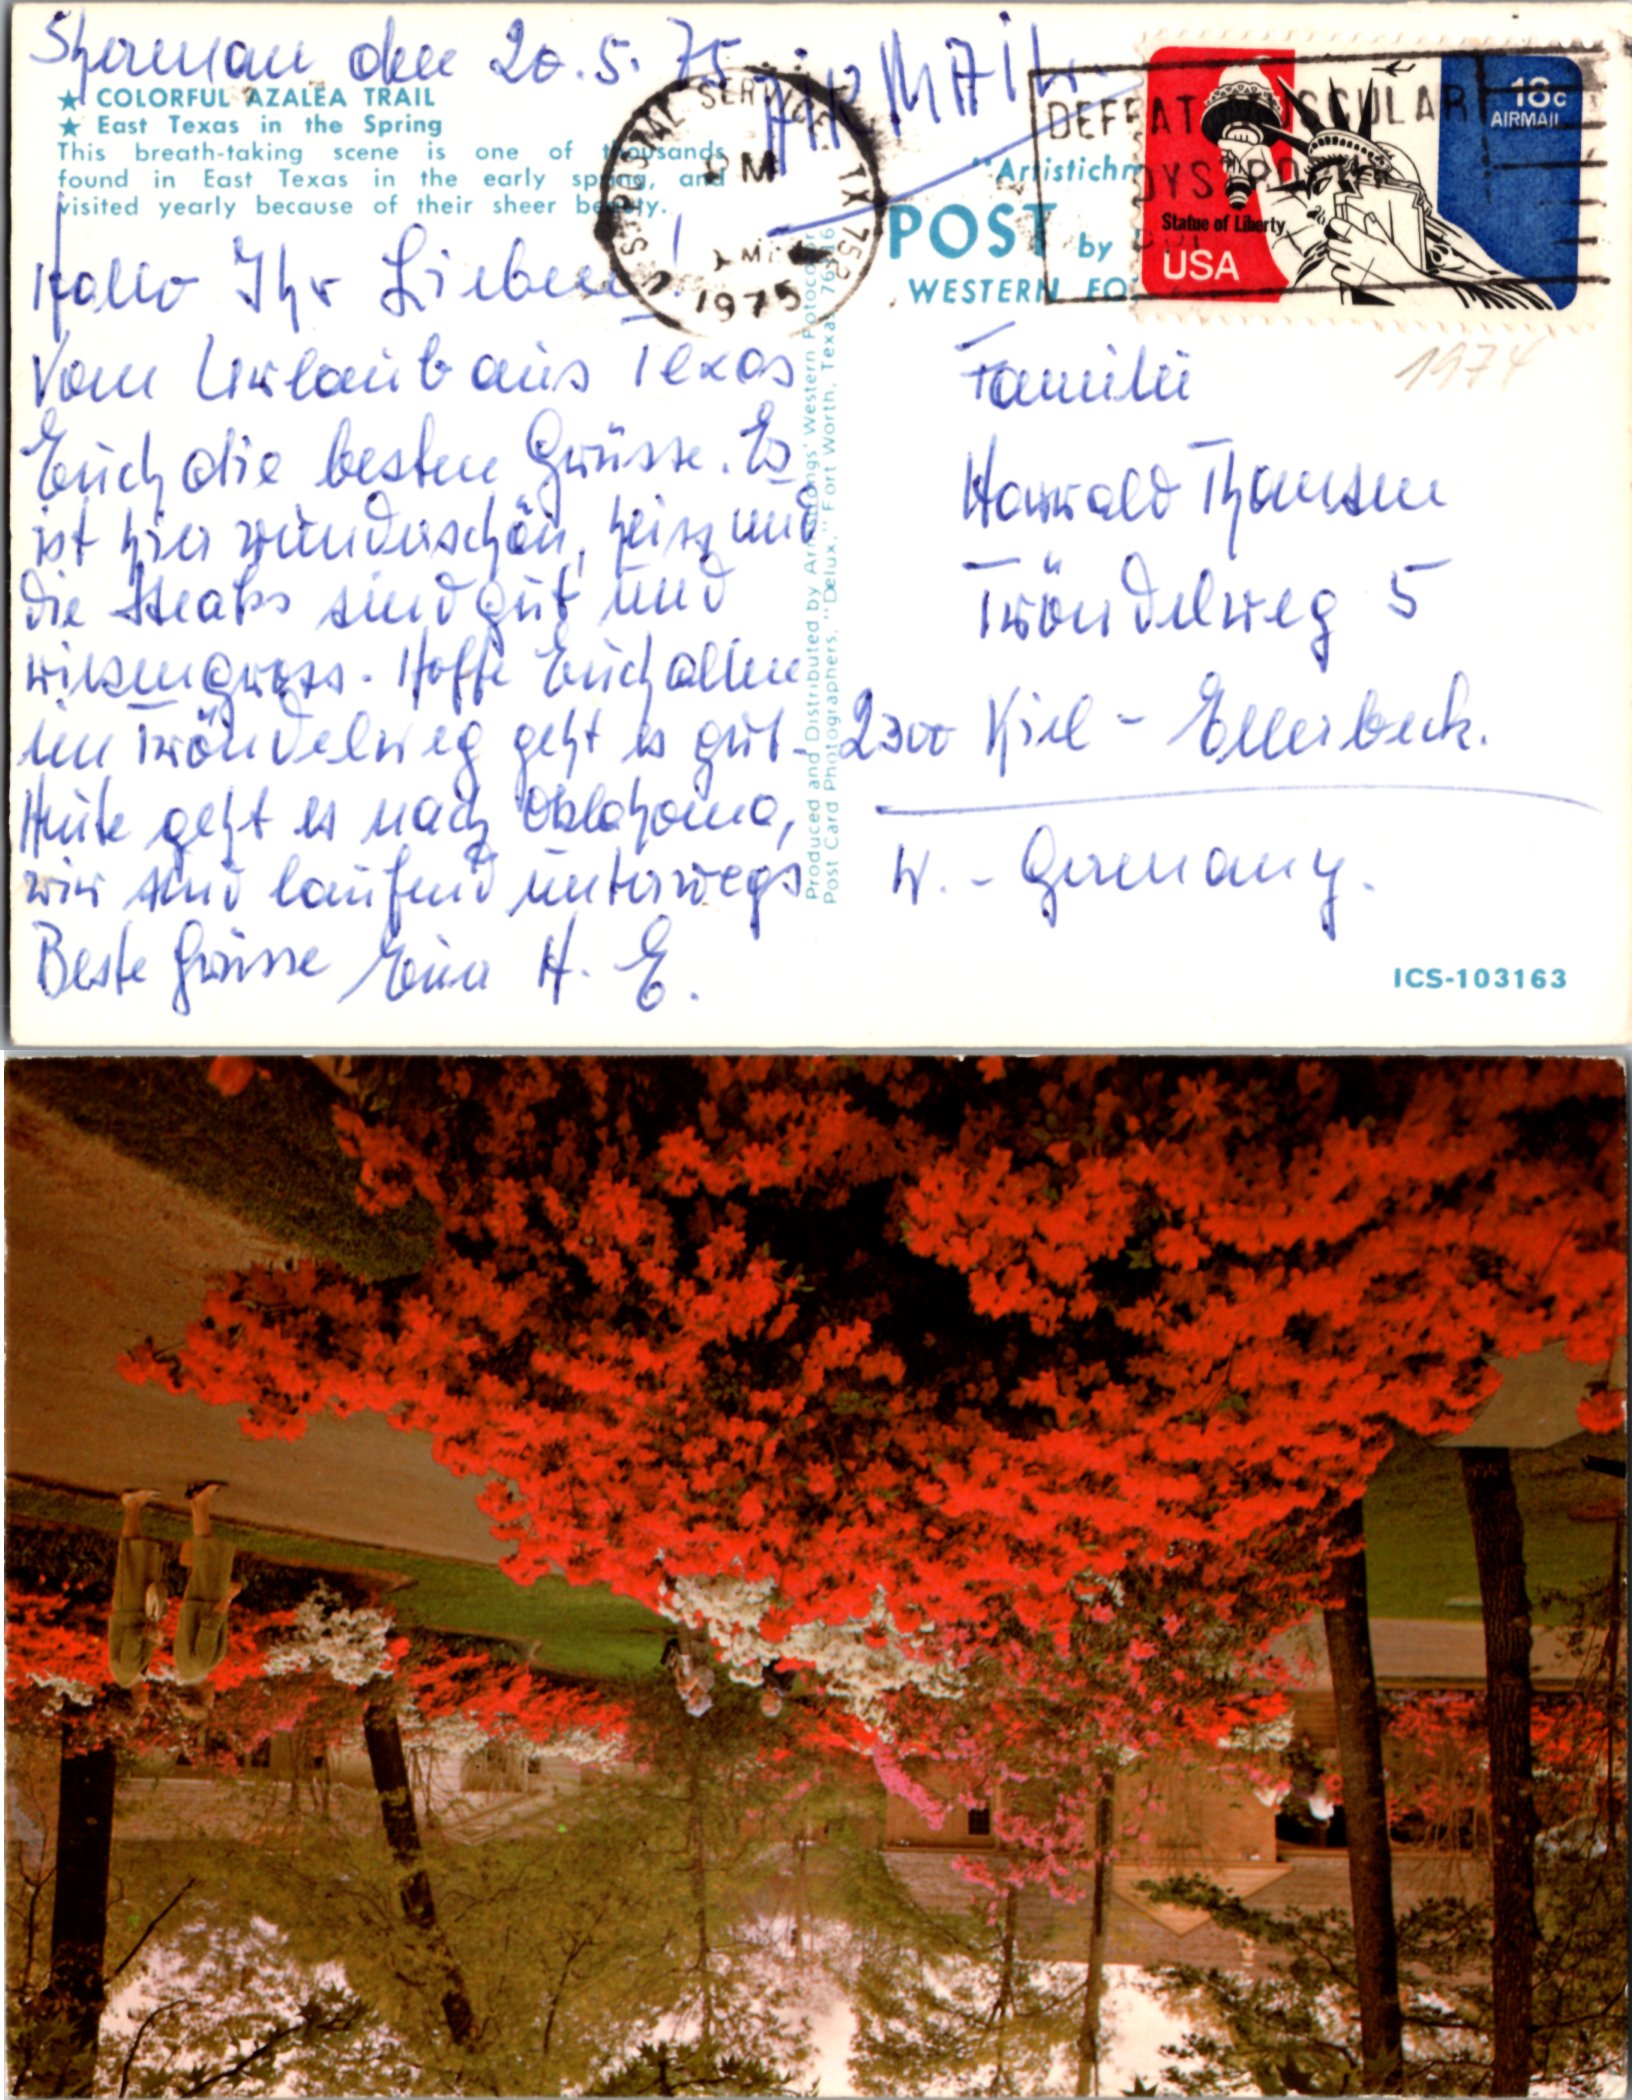 Sherman den 20.5.75
AIRMAIL
★ COLORFUL AZALEA TRAIL
★ East Texas in the Spring
This breath-taking scene is one of thousands
found in East Texas in the early spring, and
visited yearly because of their sheer beauty.
Hallo Ihr Lieben!
Vom Urlaub aus Texas
Euch die besten Grüsse. Es
ist hier wunderschön, heiss und
die Steaks sind gut und
riesengross. Hoffe Euch allen
im Tröndelweg geht es gut.
Heute geht es nach Oklahoma,
wir sind laufend unterwegs
Beste Grüsse Euer H. E.
Produced and Distributed by Armstrongs' Western Fotocolor
Post Card Photographers, "Delux," Fort Worth, Texas 76116
U.S. POSTAL SERVICE TX 752
PM
1975
DEFEAT MUSCULAR
DYSTRO
"Artistichr
POST
by
WESTERN FO
18c
AIRMAIL
Statue of Liberty
USA
1974
Familie
Harald Thomsen
Tröndelweg 5
2300 Kiel - Ellerbeck.
W. - Germany.
ICS-103163